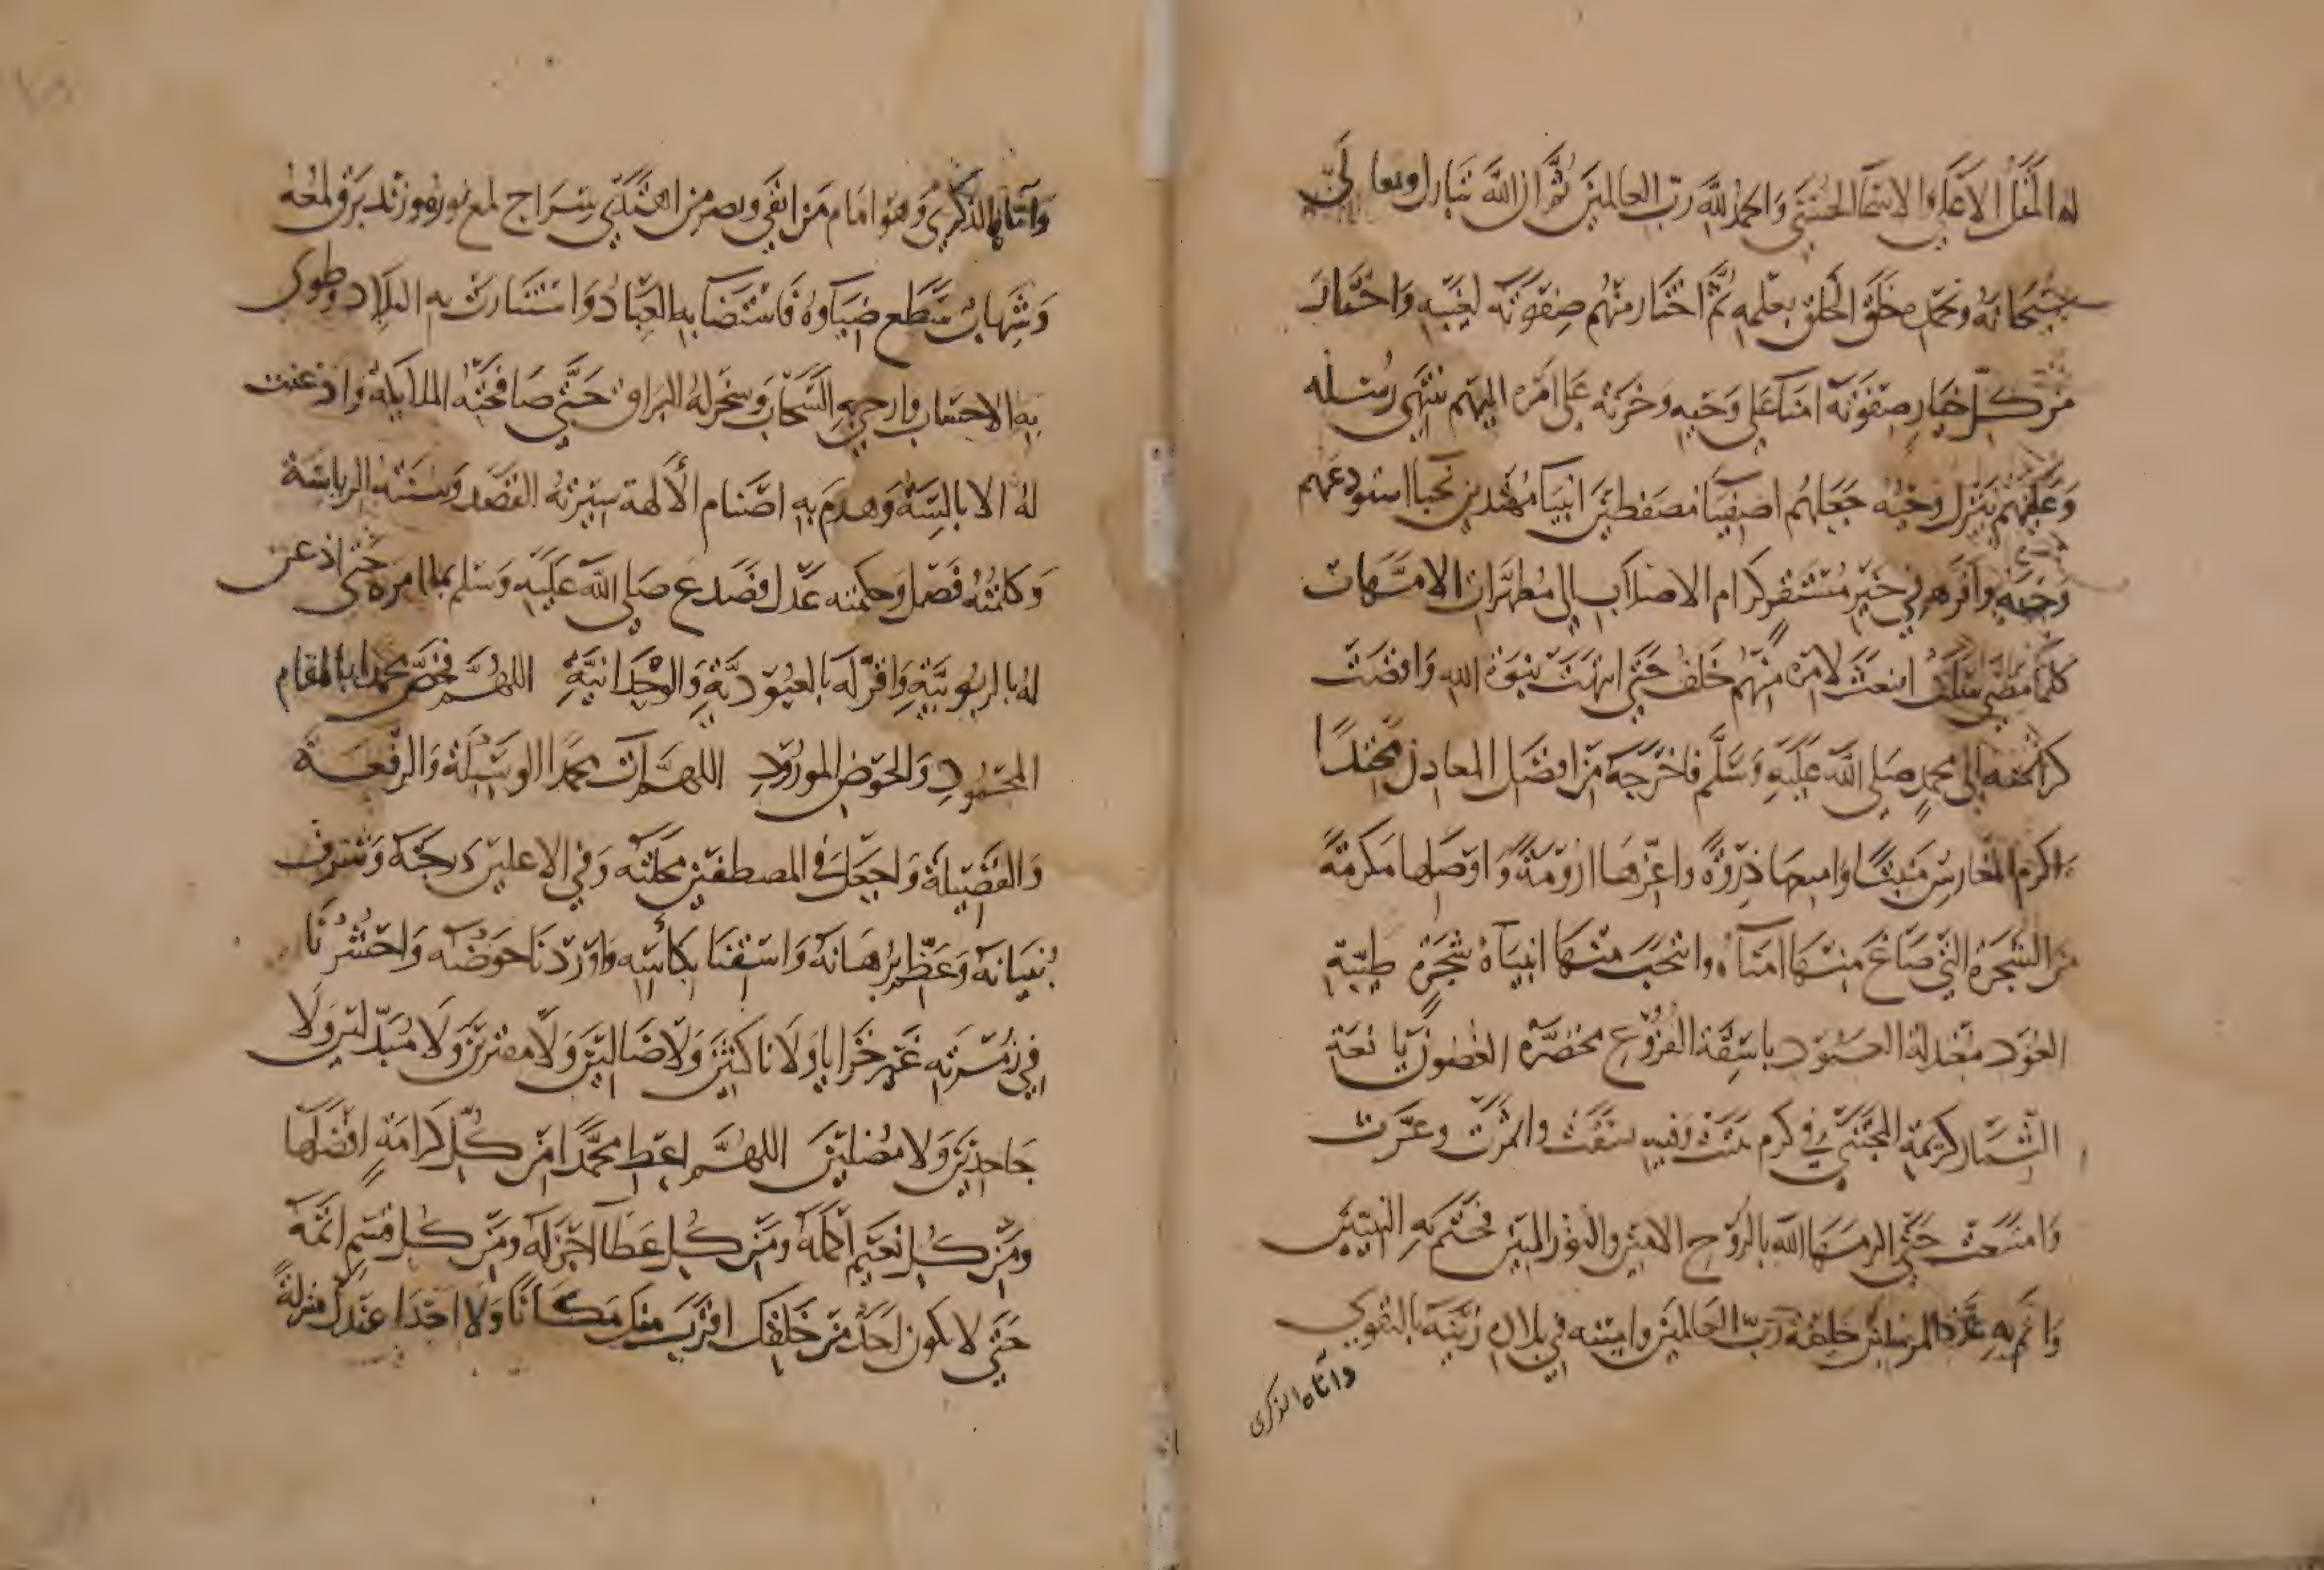 له المثل الاعلى والاسما الحسنى والحمد لله رب العالمين ثم ان الله تبارك وتعالى
سبحانه وبحمده خلق الخلق بعلمه ثم اختار منهم صفوته لغيبه واختار
من كل خيار صفوته امنا على وحيه وخزنة على امره اليهم تنتهى رسله
وعليهم ينزل وحيه جعلهم اصفيا مصطفين انبيا مهتدين نجبا استودعهم
وحيه واقرهم في خير مستقر كرام الاصلاب الى مطهرات الامهات
كلما مضى سلف انبعث لامره منهم خلف حتى انتهت نبوة الله وافضت
كرامته الى محمد صلى الله عليه وسلم فاخرجه من افضل المعادن محتدا
واكرم المغارس منبتا وامنعها ذروة واعزها ارومة واوصلها مكرمة
من الشجرة التي صاغ منها امناه وانتخب منها انبياه شجرة طيبة
العود معتدلة العمود باسقة الفروع مخضرة الغصون يانعة
الثمار كريمة المجتنى في كرم نبتت وفيه سقت واثمرت وعزت
وامتنعت حتى اكرمها الله بالروح الامين والنور المبين فختم به النبيين
واتم به عدة المرسلين خليفة رب العالمين وامينه في بلاده زينه بالتقوى
واتاه الذكرى
واتاه الذكرى وهو امام من اتقى وبصر من اهتدى سراج لمع نوره وزند برق لمعه
وشهاب سطع ضياوه فاستضا به العباد واستنارت به البلاد وطوى
به الاحساب وازجى به السحاب وسخر له البراق حتى صافحته الملايكة واذعنت
له الابالسة وهدم به اصنام الالهة سيرته القصد وسنته الرباسة
وكلمته فصل وحكمته عدل فصدع صلى الله عليه وسلم بما امره حتى اذعن
له بالربوبية واقر له بالعبودية والوحدانية اللهم فخص محمدا بالمقام
المحمود والحوض المورود اللهم آت محمدا الوسيلة والرفعة
والفضيلة واجعل في المصطفين محلته وفي الاعلين درجته وشرف
بنيانه وعظم برهانه واسقنا بكاسه واوردنا حوضه واحشرنا
في زمرته غير خزايا ولا ناكثين ولا ضالين ولا مفترين ولا مبدلين ولا
جاحدين ولا مضلين اللهم اعط محمدا من كل كرامة افضلها
ومن كل نعيم اكمله ومن كل عطآ اجزله ومن كل قسم اتمه
حتى لا يكون احد من خلقك اقرب منك مكانا ولا احدا عندك منزلة